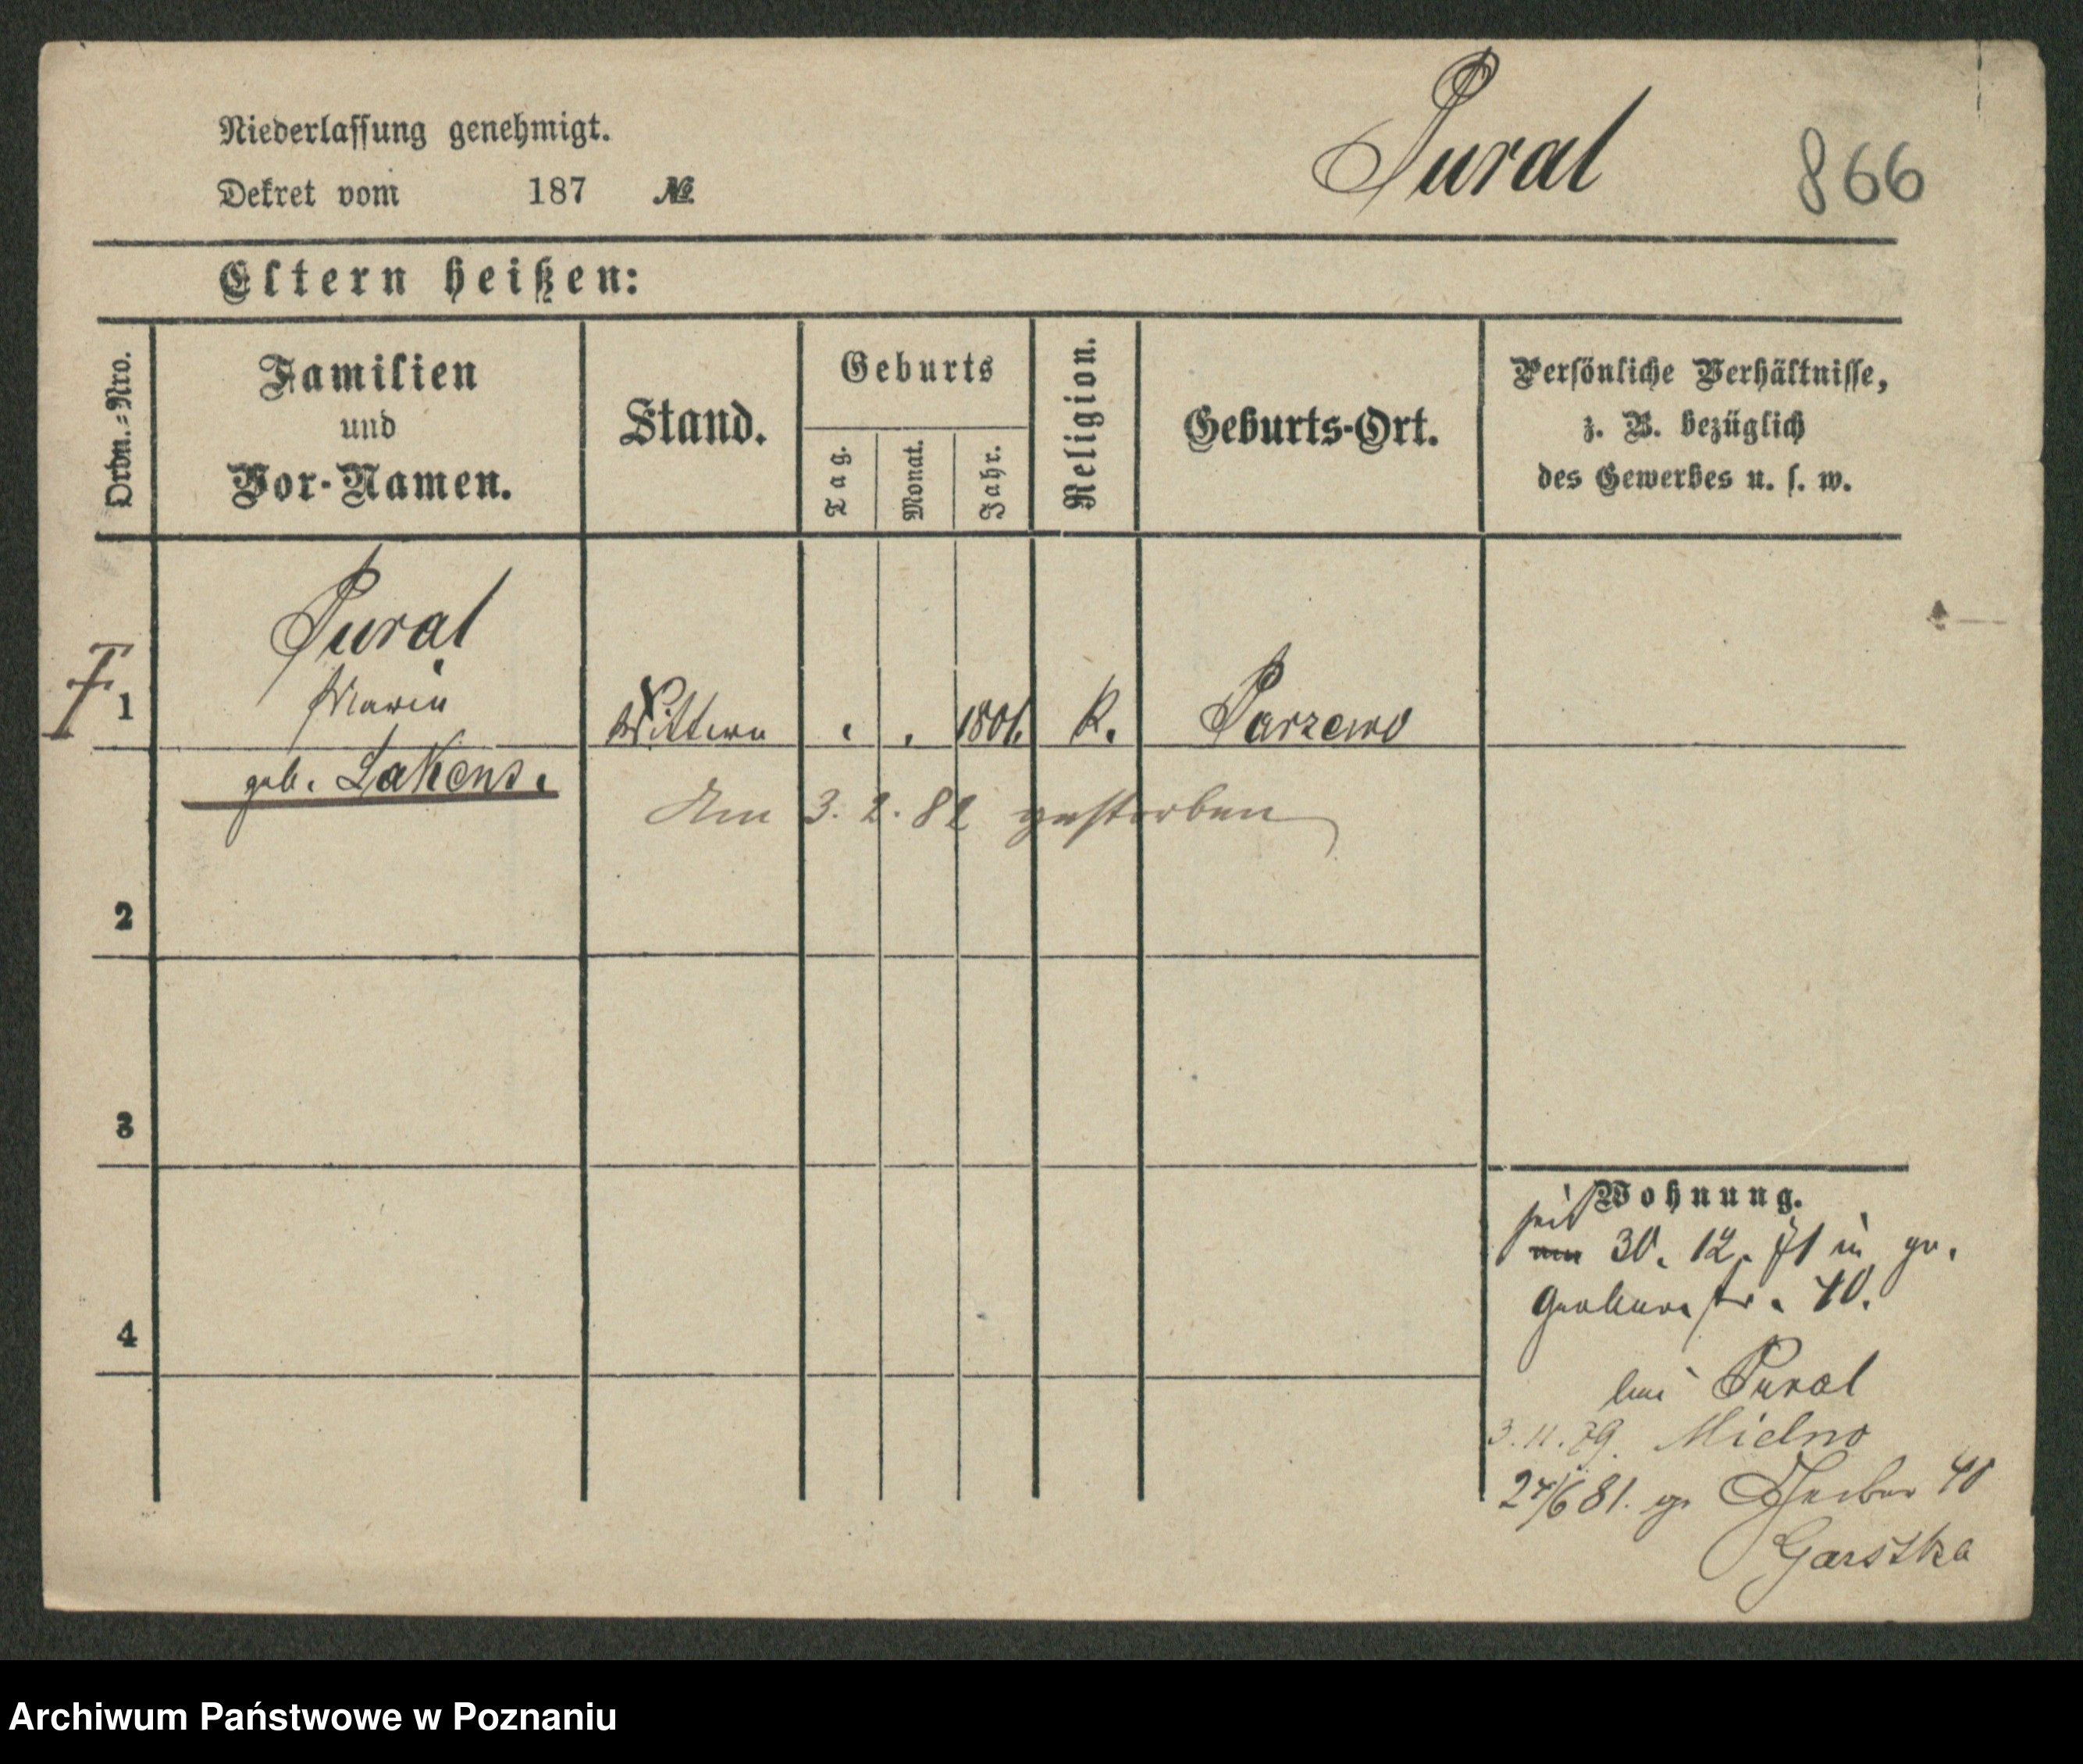 Pural 866
Niederlassung genehmigt.
Dekret vom 187 №
Eltern heißen:
Ordn.-Nro.
Familien
und
Vor-Namen.
Stand.
Geburts
Tag.
Monat.
Jahr.
Religion.
Geburts-Ort.
Persönliche Verhältnisse,
z. B. bezüglich
des Gewerbes u. s. w.
Pural
Maria
1 Wittwe . . 1801. K. Parzewo
geb. Lakens.
Am 3. 2. 82 gestorben
2
3
4
Wohnung.
seit
am 30. 12. 71 in gr.
Gerberstr. 40.
bei Pural
3. 11. 79. Mielno
24/6 81. gr Gerber 40
Garstka
Archiwum Państwowe w Poznaniu